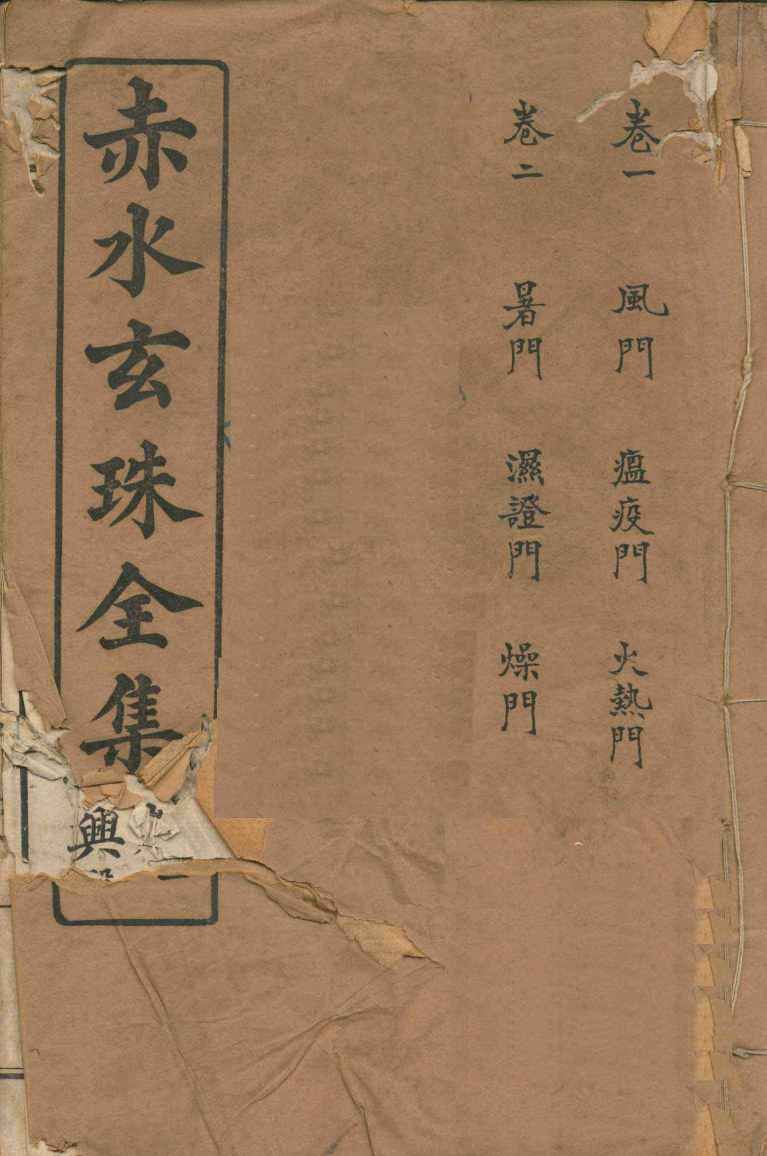 卷一 風門 瘟疫門 火熱門
卷二 暑門 濕證門 燥門
赤水玄珠全集
興